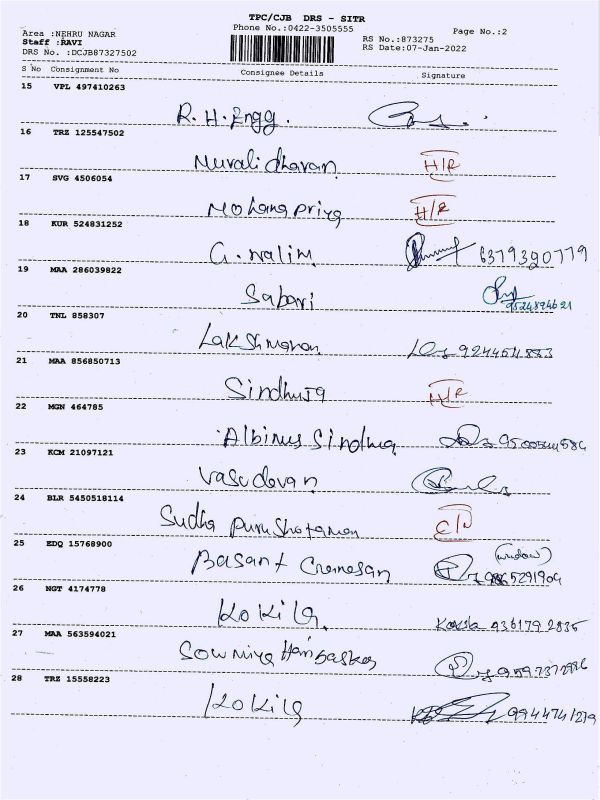 TPC/CJB DRS - SITR
Phone No.:0422-3505555
Area :NEHRU NAGAR
Staff :RAVI
DRS No. :DCJB87327502
RS No.:873275 Page No.:2
RS Date:07-Jan-2022
S No Consignment No Consignee Details Signature
15 VPL 497410263
R. H. Engg.
16 TRZ 125547502
Muralidharan H/R
17 SVG 4506054
Mohanapriya H/R
18 KUR 524831252
G. Nalim 6379390779
19 MAA 286039822
Sabari 9524894621
20 TNL 858307
Lakshmanan
21 MAA 856850713
Sindhuja H/R
22 MGN 464785
Albinus Sindhuja
23 KCM 21097121
Vasudevan
24 BLR 5450518114
Sudha Purushotaman
25 EDQ 15768900
Basant (window)
26 NGT 4174778
Kokila
27 MAA 563594021
Sowmiya Haribaskar
28 TRZ 15558223
Kokila